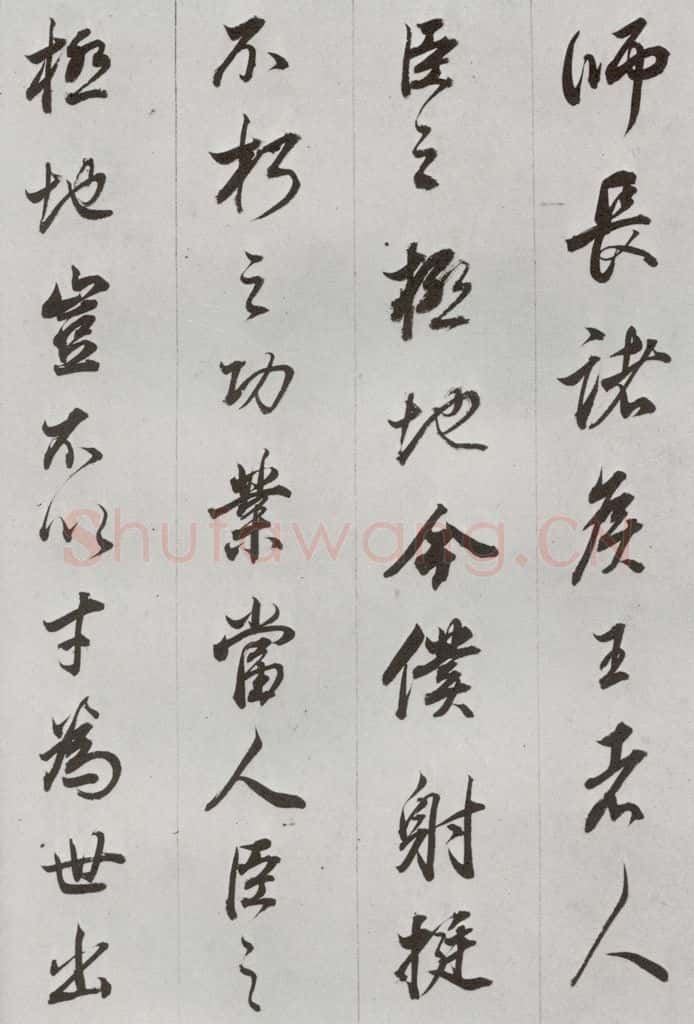 师長诸侯王者人
臣之極地今僕射挺
不朽之功業當人臣之
極地豈不以才為世出
Shufawang.CN